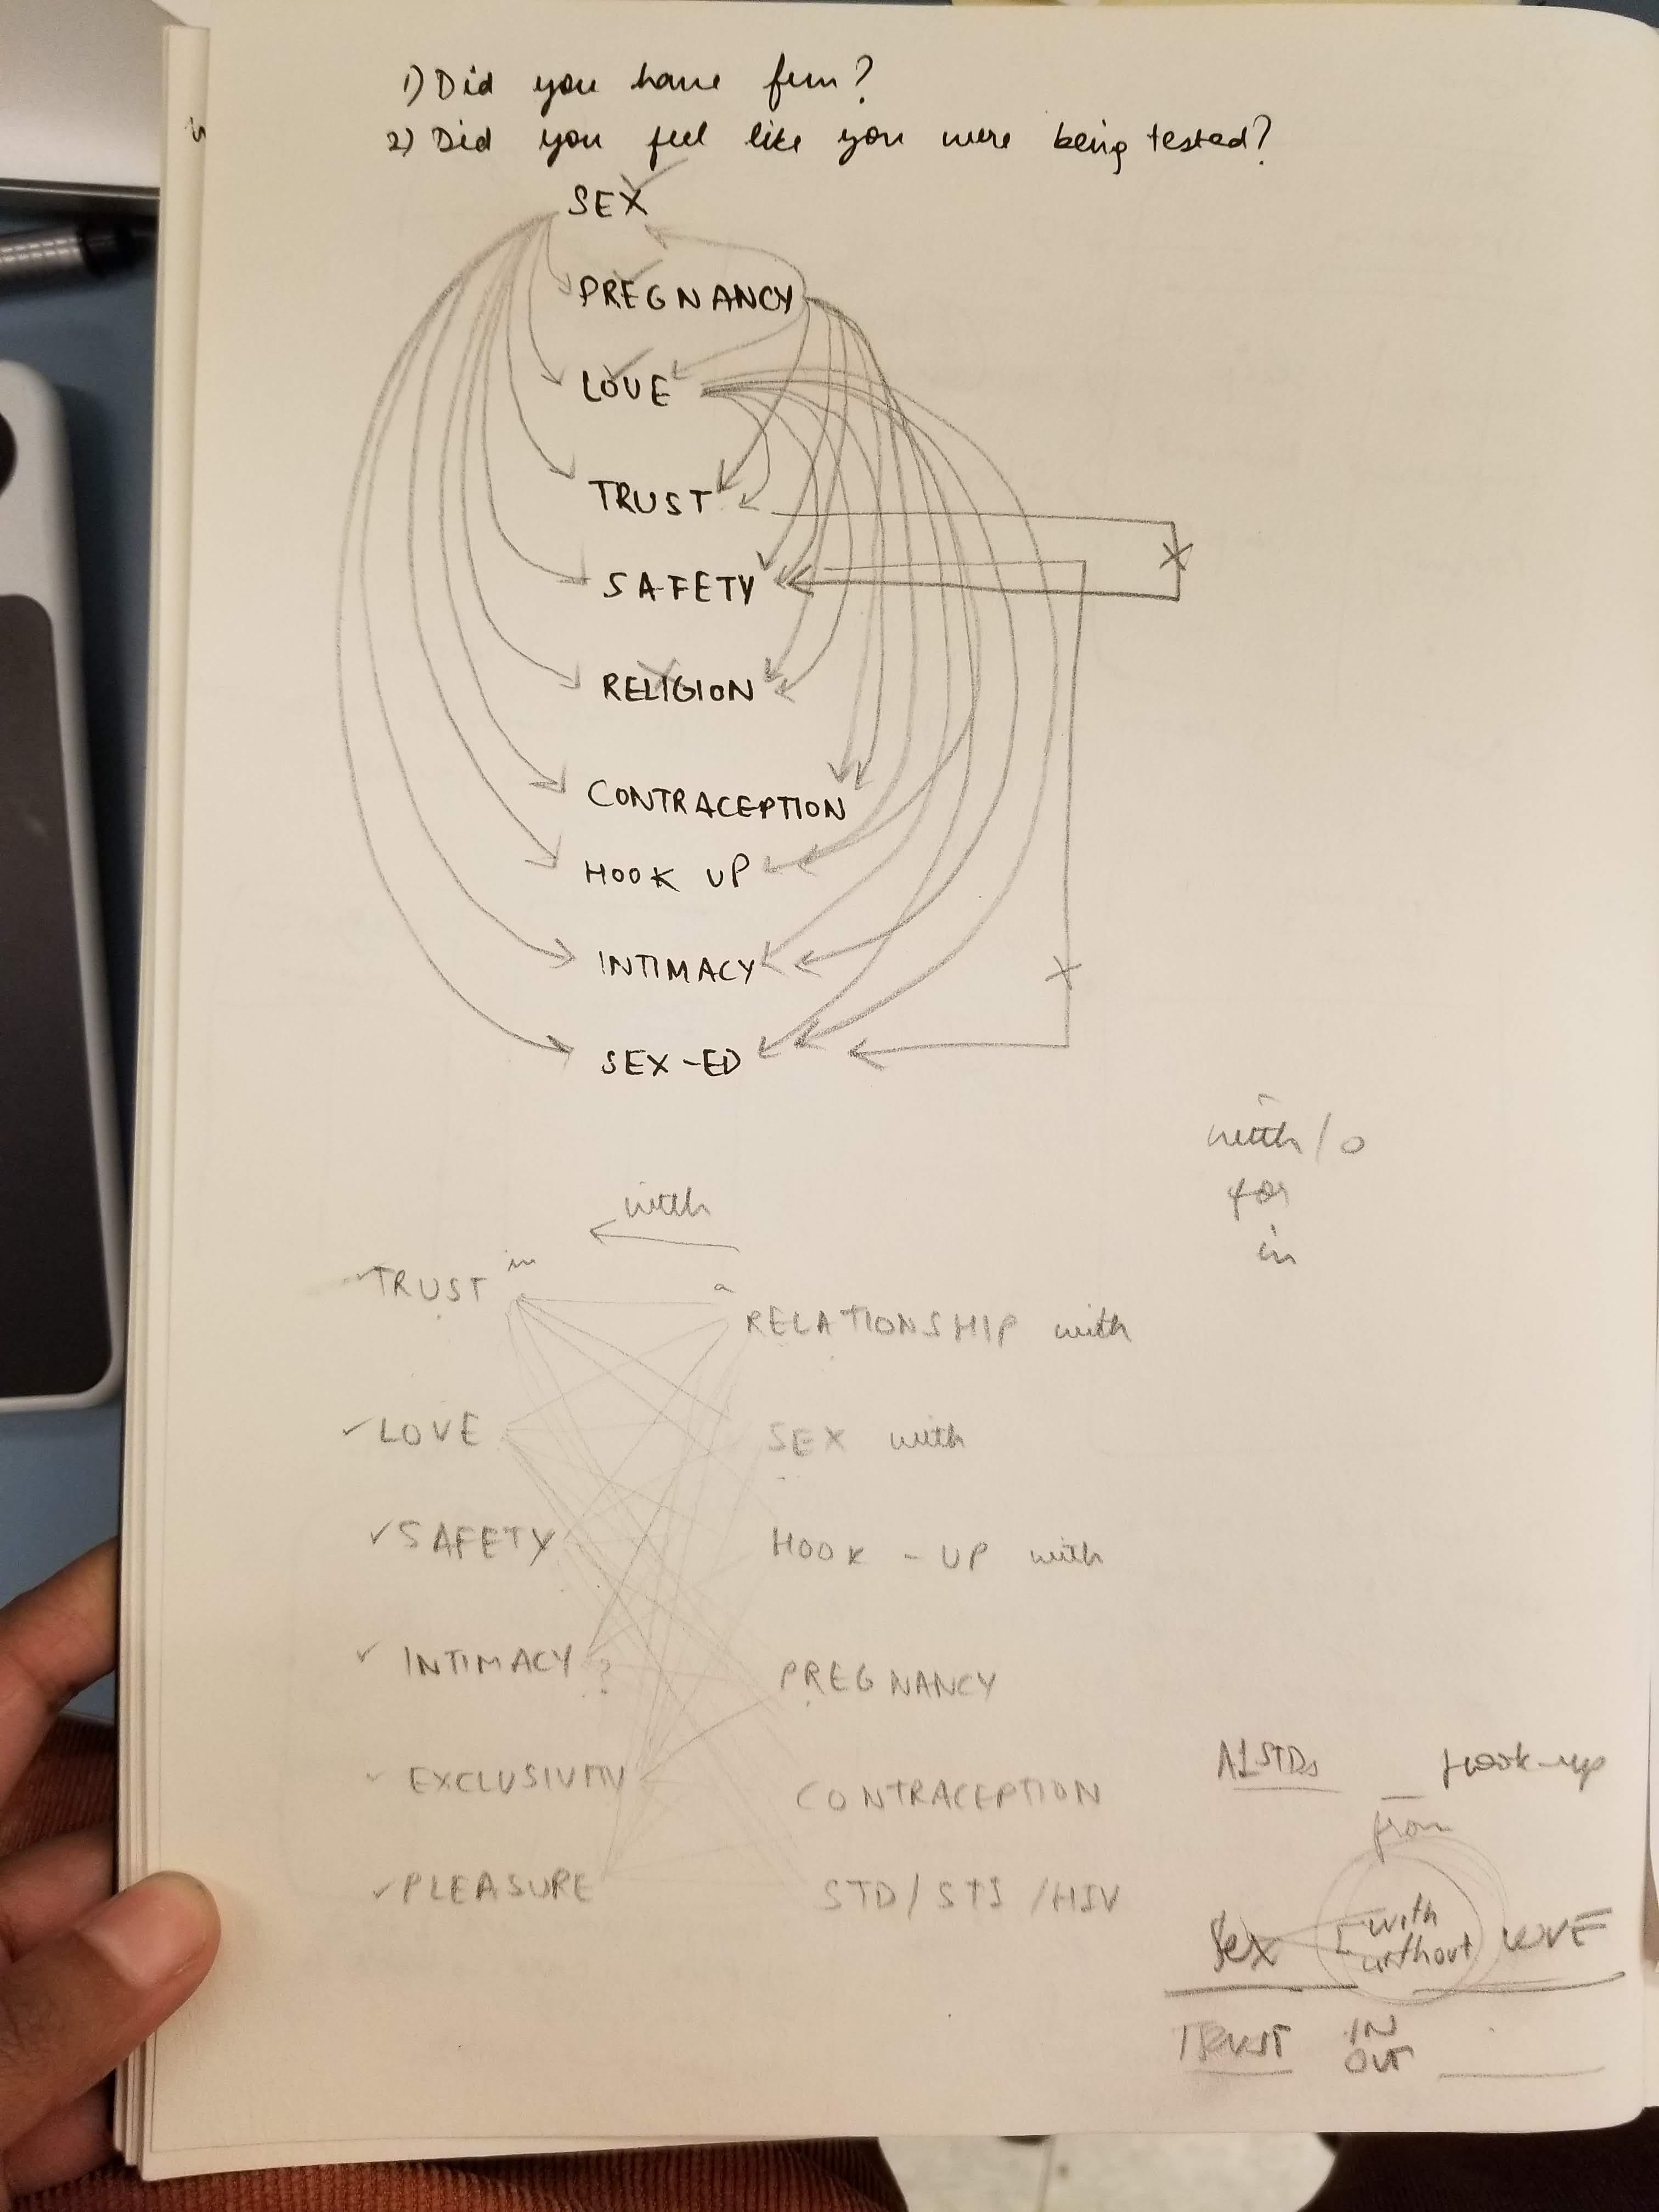 1) Did you have fun?
2) Did you feel like you were being tested?
SEX
PREGNANCY
LOVE
TRUST
SAFETY
RELIGION
CONTRACEPTION
HOOK UP
INTIMACY
SEX-ED
with/o
for
in
with
TRUST in a RELATIONSHIP with
LOVE SEX with
SAFETY HOOK-UP with
INTIMACY ? PREGNANCY
EXCLUSIVITY CONTRACEPTION
PLEASURE STD/STI/HIV
Hook-up
from
Sex with without LOVE
TRUST IN OUT